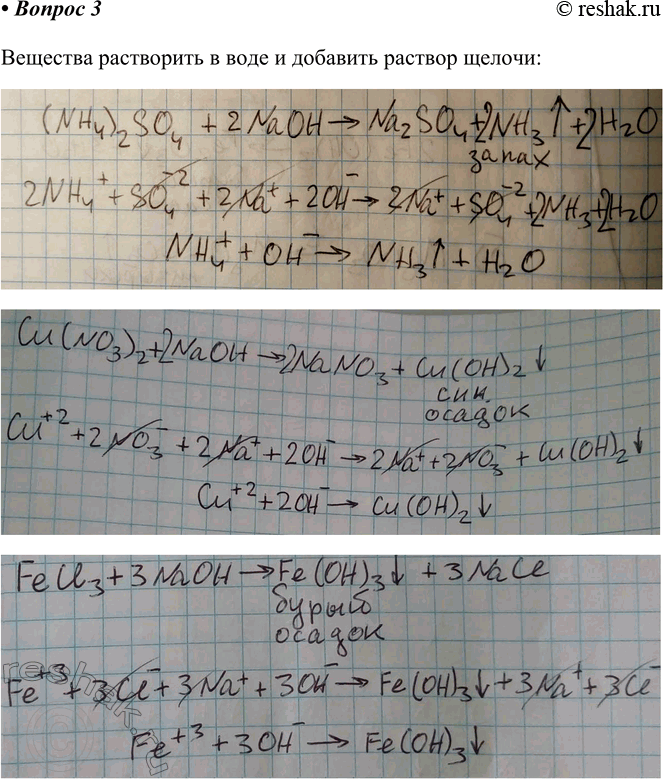 • Вопрос 3
© reshak.ru
Вещества растворить в воде и добавить раствор щелочи:
(NH₄)₂SO₄ + 2NaOH → Na₂SO₄ + 2NH₃↑ + 2H₂O
запах
2NH₄⁺ + SO₄⁻² + 2Na⁺ + 2OH⁻ → 2Na⁺ + SO₄⁻² + 2NH₃ + 2H₂O
NH₄⁺ + OH⁻ → NH₃↑ + H₂O
Cu(NO₃)₂ + 2NaOH → 2NaNO₃ + Cu(OH)₂↓
син.
осадок
Cu⁺² + 2NO₃⁻ + 2Na⁺ + 2OH⁻ → 2Na⁺ + 2NO₃⁻ + Cu(OH)₂↓
Cu⁺² + 2OH⁻ → Cu(OH)₂↓
FeCl₃ + 3NaOH → Fe(OH)₃↓ + 3NaCl
бурый
осадок
Fe⁺³ + 3Cl⁻ + 3Na⁺ + 3OH⁻ → Fe(OH)₃↓ + 3Na⁺ + 3Cl⁻
Fe⁺³ + 3OH⁻ → Fe(OH)₃↓
reshak.ru